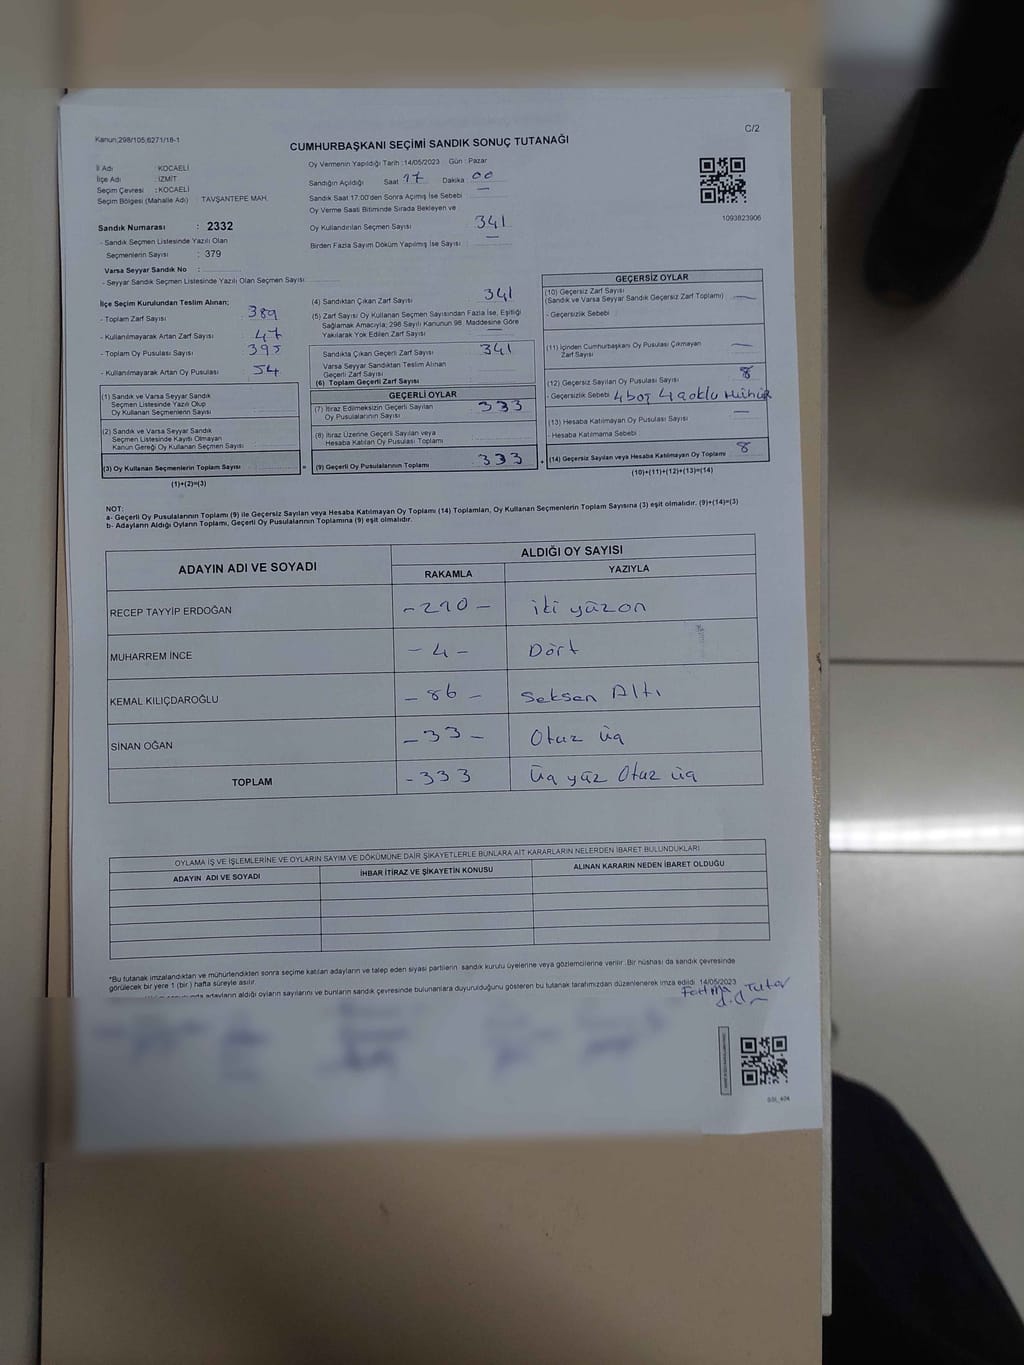 Kanun:298/105;6271/18-1
C/2
CUMHURBAŞKANI SEÇİMİ SANDIK SONUÇ TUTANAĞI
İl Adı : KOCAELİ
İlçe Adı : İZMİT
Seçim Çevresi : KOCAELİ
Seçim Bölgesi (Mahalle Adı) : TAVŞANTEPE MAH.
Oy Vermenin Yapıldığı Tarih :14/05/2023 Gün : Pazar
Sandığın Açıldığı Saat 17 Dakika 00
Sandık Saat 17:00'den Sonra Açımış İse Sebebi —
Oy Verme Saati Bitiminde Sırada Bekleyen ve
Oy Kullandırılan Seçmen Sayısı 341
Birden Fazla Sayım Döküm Yapılmış İse Sayısı —
1093823906
Sandık Numarası : 2332
- Sandık Seçmen Listesinde Yazılı Olan
Seçmenlerin Sayısı : 379
Varsa Seyyar Sandık No :
- Seyyar Sandık Seçmen Listesinde Yazılı Olan Seçmen Sayısı
İlçe Seçim Kurulundan Teslim Alınan;
- Toplam Zarf Sayısı 389
- Kullanılmayarak Artan Zarf Sayısı 47
- Toplam Oy Pusulası Sayısı 395
- Kullanılmayarak Artan Oy Pusulası 54
(1) Sandık ve Varsa Seyyar Sandık
Seçmen Listesinde Yazılı Olup
Oy Kullanan Seçmenlerin Sayısı
(2) Sandık ve Varsa Seyyar Sandık
Seçmen Listesinde Kayıtlı Olmayan
Kanun Gereği Oy Kullanan Seçmen Sayısı
(3) Oy Kullanan Seçmenlerin Toplam Sayısı
(1)+(2)=(3)
=
(4) Sandıktan Çıkan Zarf Sayısı 341
(5) Zarf Sayısı Oy Kullanan Seçmen Sayısından Fazla İse, Eşitliği
Sağlamak Amacıyla; 298 Sayılı Kanunun 98. Maddesine Göre
Yakılarak Yok Edilen Zarf Sayısı —
Sandıkta Çıkan Geçerli Zarf Sayısı 341
Varsa Seyyar Sandıktan Teslim Alınan
Geçerli Zarf Sayısı
(6) Toplam Geçerli Zarf Sayısı
GEÇERLİ OYLAR
(7) İtiraz Edilmeksizin Geçerli Sayılan
Oy Pusulalarının Sayısı 333
(8) İtiraz Üzerine Geçerli Sayılan veya
Hesaba Katılan Oy Pusulası Toplamı
(9) Geçerli Oy Pusulalarının Toplamı 333
+
GEÇERSİZ OYLAR
(10) Geçersiz Zarf Sayısı
(Sandık ve Varsa Seyyar Sandık Geçersiz Zarf Toplamı) —
- Geçersizlik Sebebi
(11) İçinden Cumhurbaşkanı Oy Pusulası Çıkmayan
Zarf Sayısı —
(12) Geçersiz Sayılan Oy Pusulası Sayısı 8
- Geçersizlik Sebebi 4 boş 4 çoklu mühür
(13) Hesaba Katılmayan Oy Pusulası Sayısı —
- Hesaba Katılmama Sebebi
(14) Geçersiz Sayılan veya Hesaba Katılmayan Oy Toplamı 8
(10)+(11)+(12)+(13)=(14)
NOT:
a- Geçerli Oy Pusulalarının Toplamı (9) ile Geçersiz Sayılan veya Hesaba Katılmayan Oy Toplamı (14) Toplamları, Oy Kullanan Seçmenlerin Toplam Sayısına (3) eşit olmalıdır. (9)+(14)=(3)
b- Adayların Aldığı Oyların Toplamı, Geçerli Oy Pusulalarının Toplamına (9) eşit olmalıdır.
ADAYIN ADI VE SOYADI
ALDIĞI OY SAYISI
RAKAMLA YAZIYLA
RECEP TAYYİP ERDOĞAN - 210 - iki yüzon
MUHARREM İNCE - 4 - Dört
KEMAL KILIÇDAROĞLU - 86 - Seksen Altı
SİNAN OĞAN - 33 - Otuz üç
TOPLAM - 333 üç yüz Otuz üç
OYLAMA İŞ VE İŞLEMLERİNE VE OYLARIN SAYIM VE DÖKÜMÜNE DAİR ŞİKAYETLERLE BUNLARA AİT KARARLARIN NELERDEN İBARET BULUNDUKLARI
ADAYIN ADI VE SOYADI İHBAR İTİRAZ VE ŞİKAYETİN KONUSU ALINAN KARARIN NEDEN İBARET OLDUĞU
*Bu tutanak imzalandıktan ve mühürlendikten sonra seçime katılan adayların ve talep eden siyasi partilerin sandık kurulu üyelerine veya gözlemcilerine verilir. Bir nüshası da sandık çevresinde
görülecek bir yere 1 (bir) hafta süreyle asılır.
adayların aldığı oyların sayılarını ve bunların sandık çevresinde bulunanlara duyurulduğunu gösteren bu tutanak tarafımızdan düzenlenerek imza edildi. 14/05/2023
Fatma Tutar